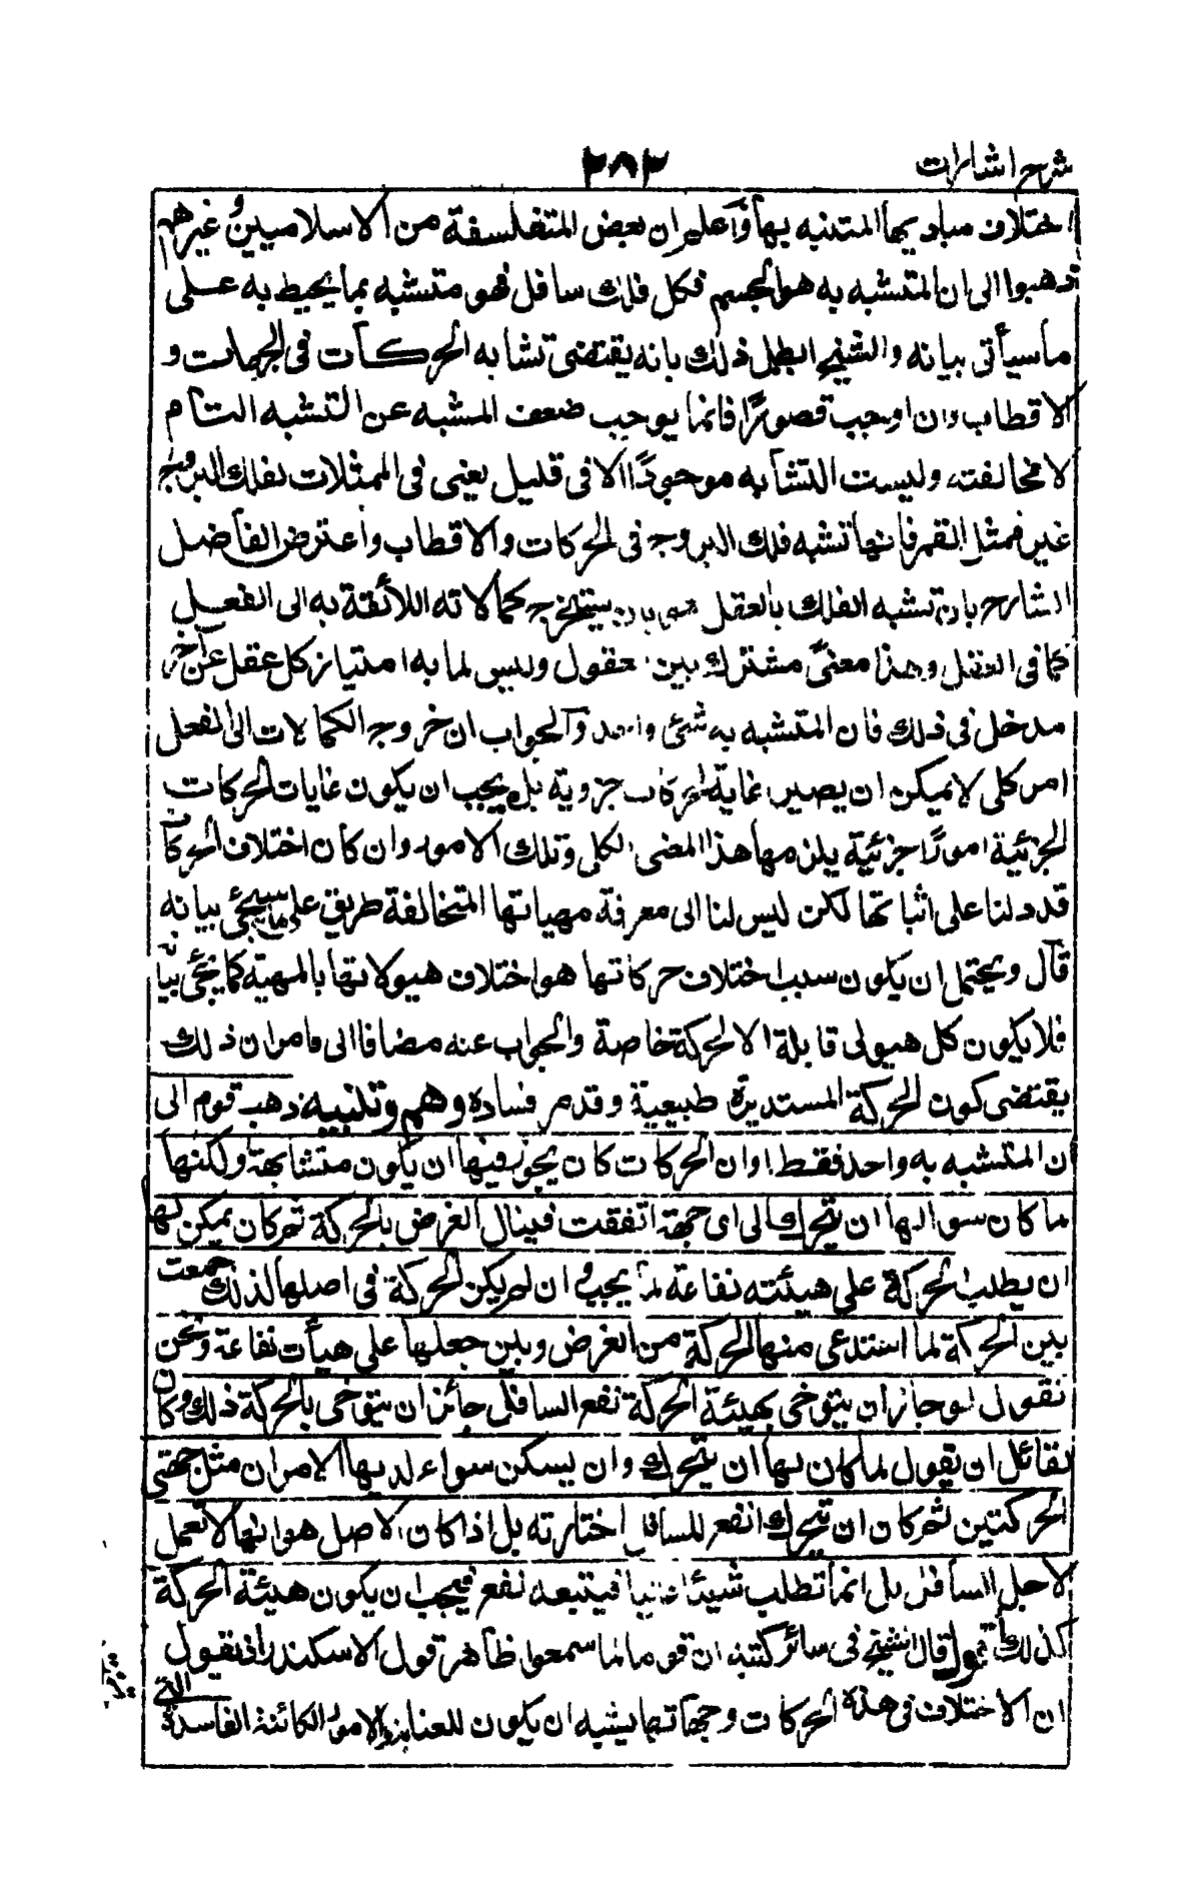 شرح اشارات
٢٨٣
اختلاف مباديها المتشبه بها واعلم ان بعض المتفلسفة من الاسلاميين وغيرهم
ذهبوا الى ان المتشبه به هو الجسم فكل فلك سافل فهو متشبه بما يحيط به على
ما سيأتى بيانه والشيخ ابطل ذلك بانه يقتضى تشابه الحركات فى الجهات و
الاقطاب وان اوجب قصورًا فانما يوجب ضعف المشبه عن التشبه التام
لا مخالفته وليست التشابه موجودًا الا فى قليل يعنى فى الممثلات لفلك البروج
غير ممثل القمر فانها تشبه فلك البروج فى الحركات والاقطاب واعترض الفاضل
الشارح بان تشبه الفلك بالعقل بان يستخرج كمالاته اللائقة به الى الفعل
كما فى العقل وهذا معنىً مشترك بين العقول وليس لما به امتياز كل عقل عن اخر
مدخل فى ذلك فان المتشبه به شئ واحد والجواب ان خروج الكمالات الى الفعل
امر كلى لا يمكن ان يصير غاية لحركات جزوية بل يجب ان يكون غايات الحركات
الجزئية امورًا جزئية يلزمها هذا المعنى الكلى وتلك الامور وان كان اختلاف الحركات
قد دلنا على اثباتها لكن ليس لنا الى معرفة مهياتها المتخالفة طريق على ما سيجئ بيانه
قال ويحتمل ان يكون سبب اختلاف حركاتها هو اختلاف هيولاتها بالمهية كما يجئ بيانه
فلا يكون كل هيولى قابلة الا لحركة خاصة والجواب عنه مضافا الى ما مر ان ذلك
يقتضى كون الحركة المستديرة طبيعية وقد مر فساده وهم وتنبيه ذهب قوم الى
ن المتشبه به واحد فقط وان الحركات كان يجوز فيها ان يكون متشابهة ولكنها
ما كان سوا لها ان يتحرك الى اى جهة اتفقت فينال الغرض بالحركة ثم كان يمكن لها
ان يطلب الحركة على هيئته نفاعة لما يجب وان لم يكن الحركة فى اصلها لذلك جمعت
بين الحركة لما استدعى منها الحركة من الغرض وبين جعلها على هيأت نفاعة ونحن
نقول لو جاز ان يتوخى بهيئة الحركة نفع السافل جائز ان يتوخى بالحركة ذلك وكان
لقائل ان يقول لما كان لها ان يتحرك وان يسكن سواء لديها الامران مثل جهتى
الحركتين ثم كان ان يتحرك انفع للسافل اختارته بل اذا كان الاصل هو انها لا تعمل
لاجل السافل بل انما تطلب شيئًا عاليا فيتبعه نفع فيجب ان يكون هيئة الحركة
كذلك قال الشيخ فى سائر كتبه ان قوما لما سمعوا ظاهر قول الاسكندر اذ يقول
ان الاختلاف فى هذه الحركات وجهاتها يشبه ان يكون للعناية بالامور الكائنة الفاسدة التى